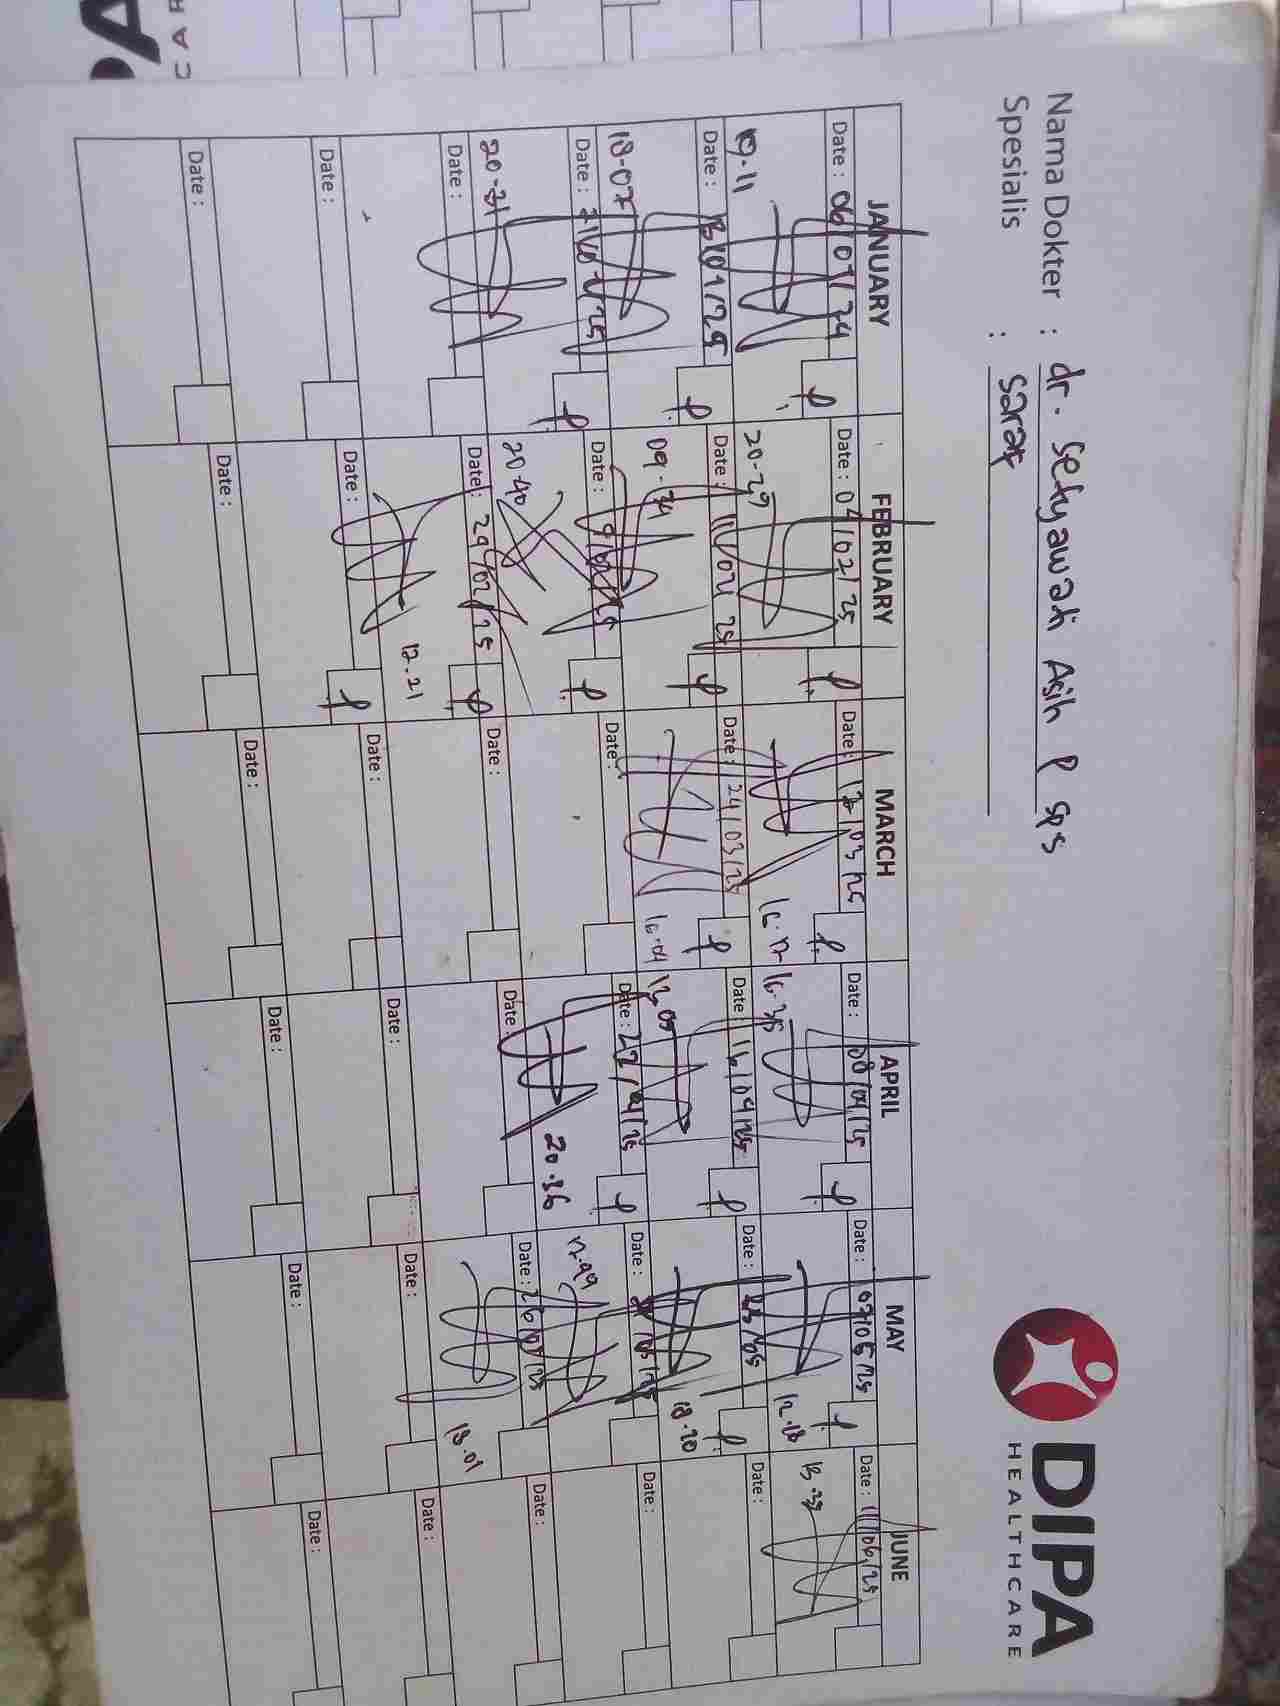 Nama Dokter : dr. Setyawati Asih P SpS
Spesialis : Saraf
DIPA
HEALTHCARE
JANUARY FEBRUARY MARCH APRIL MAY JUNE
Date : 06/01/24 Date : 04/02/25 Date : /03/25 Date : 08/04/25 Date : 07/05/25 Date : 11/06/25
09.11 20-29 16.17 16.35 12.18 13.39
Date : 13/01/25 Date : 11/02/25 Date : 24/03/25 Date : 16/04/25 Date : Date :
18-07 09.34 16.04 13.05 18.20
Date : Date : Date : Date : 22/04/25 Date : Date :
20-31 20-40 20.36 17.49
Date : Date : 24/02/25 Date : Date : Date : 26/05/25 Date :
12.21 18.01
Date : Date : Date : Date : Date : Date :
Date : Date : Date : Date : Date : Date :
PA
CAR